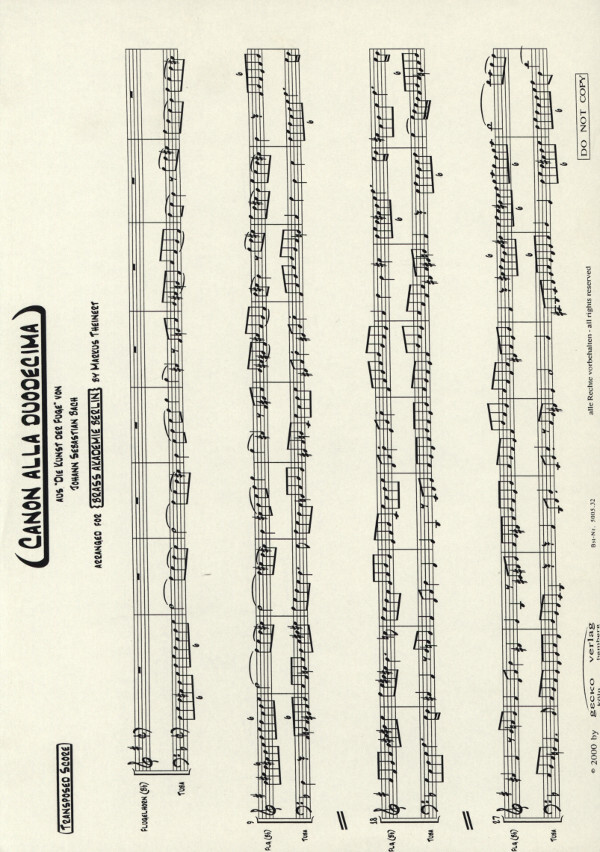 TRANSPOSED SCORE
CANON ALLA DUODECIMA
AUS "DIE KUNST DER FUGE" VON
JOHANN SEBASTIAN BACH
ARRANGED FOR {BRASS AKADEMIE BERLIN} BY MARKUS THEINERT
FLUGELHORN (Bb)
TUBA
6
6
9
FLH (Bb)
TUBA
6
6
6
6
18
FLH (Bb)
TUBA
6
6
6
6
27
FLH (Bb)
TUBA
6
6
6
6
6
© 2000 by gecko verlag
alle Rechte vorbehalten - all rights reserved
DO NOT COPY